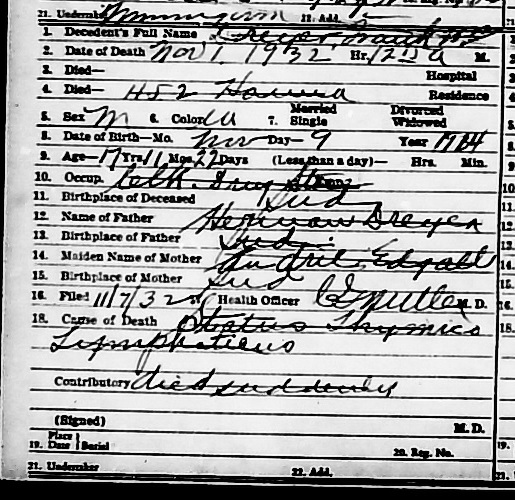 21. Undertaker 22. Add.
1. Decedent's Full Name Dreyer
2. Date of Death Nov 1, 1932 Hr. 12 A M.
3. Died— Hospital
4. Died— 452 Residence
5. Sex M 6. Color W 7. Married Single Divorced Widowed
8. Date of Birth—Mo. Nov Day— 9 Year
9. Age— 17 Yrs. 11 Mos. 22 Days (Less than a day)— Hrs. Min.
10. Occup. Clk. Drug Store
11. Birthplace of Deceased Ind
12. Name of Father Herman Dreyer
13. Birthplace of Father Ind.
14. Maiden Name of Mother
15. Birthplace of Mother Ind
16. Filed 11/7/32 Health Officer M. D.
18. Cause of Death Status Thymico
Lymphaticus
Contributory died suddenly
(Signed) M. D.
19. Place Date Burial 20. Reg. No.
21. Undertaker 22. Add.